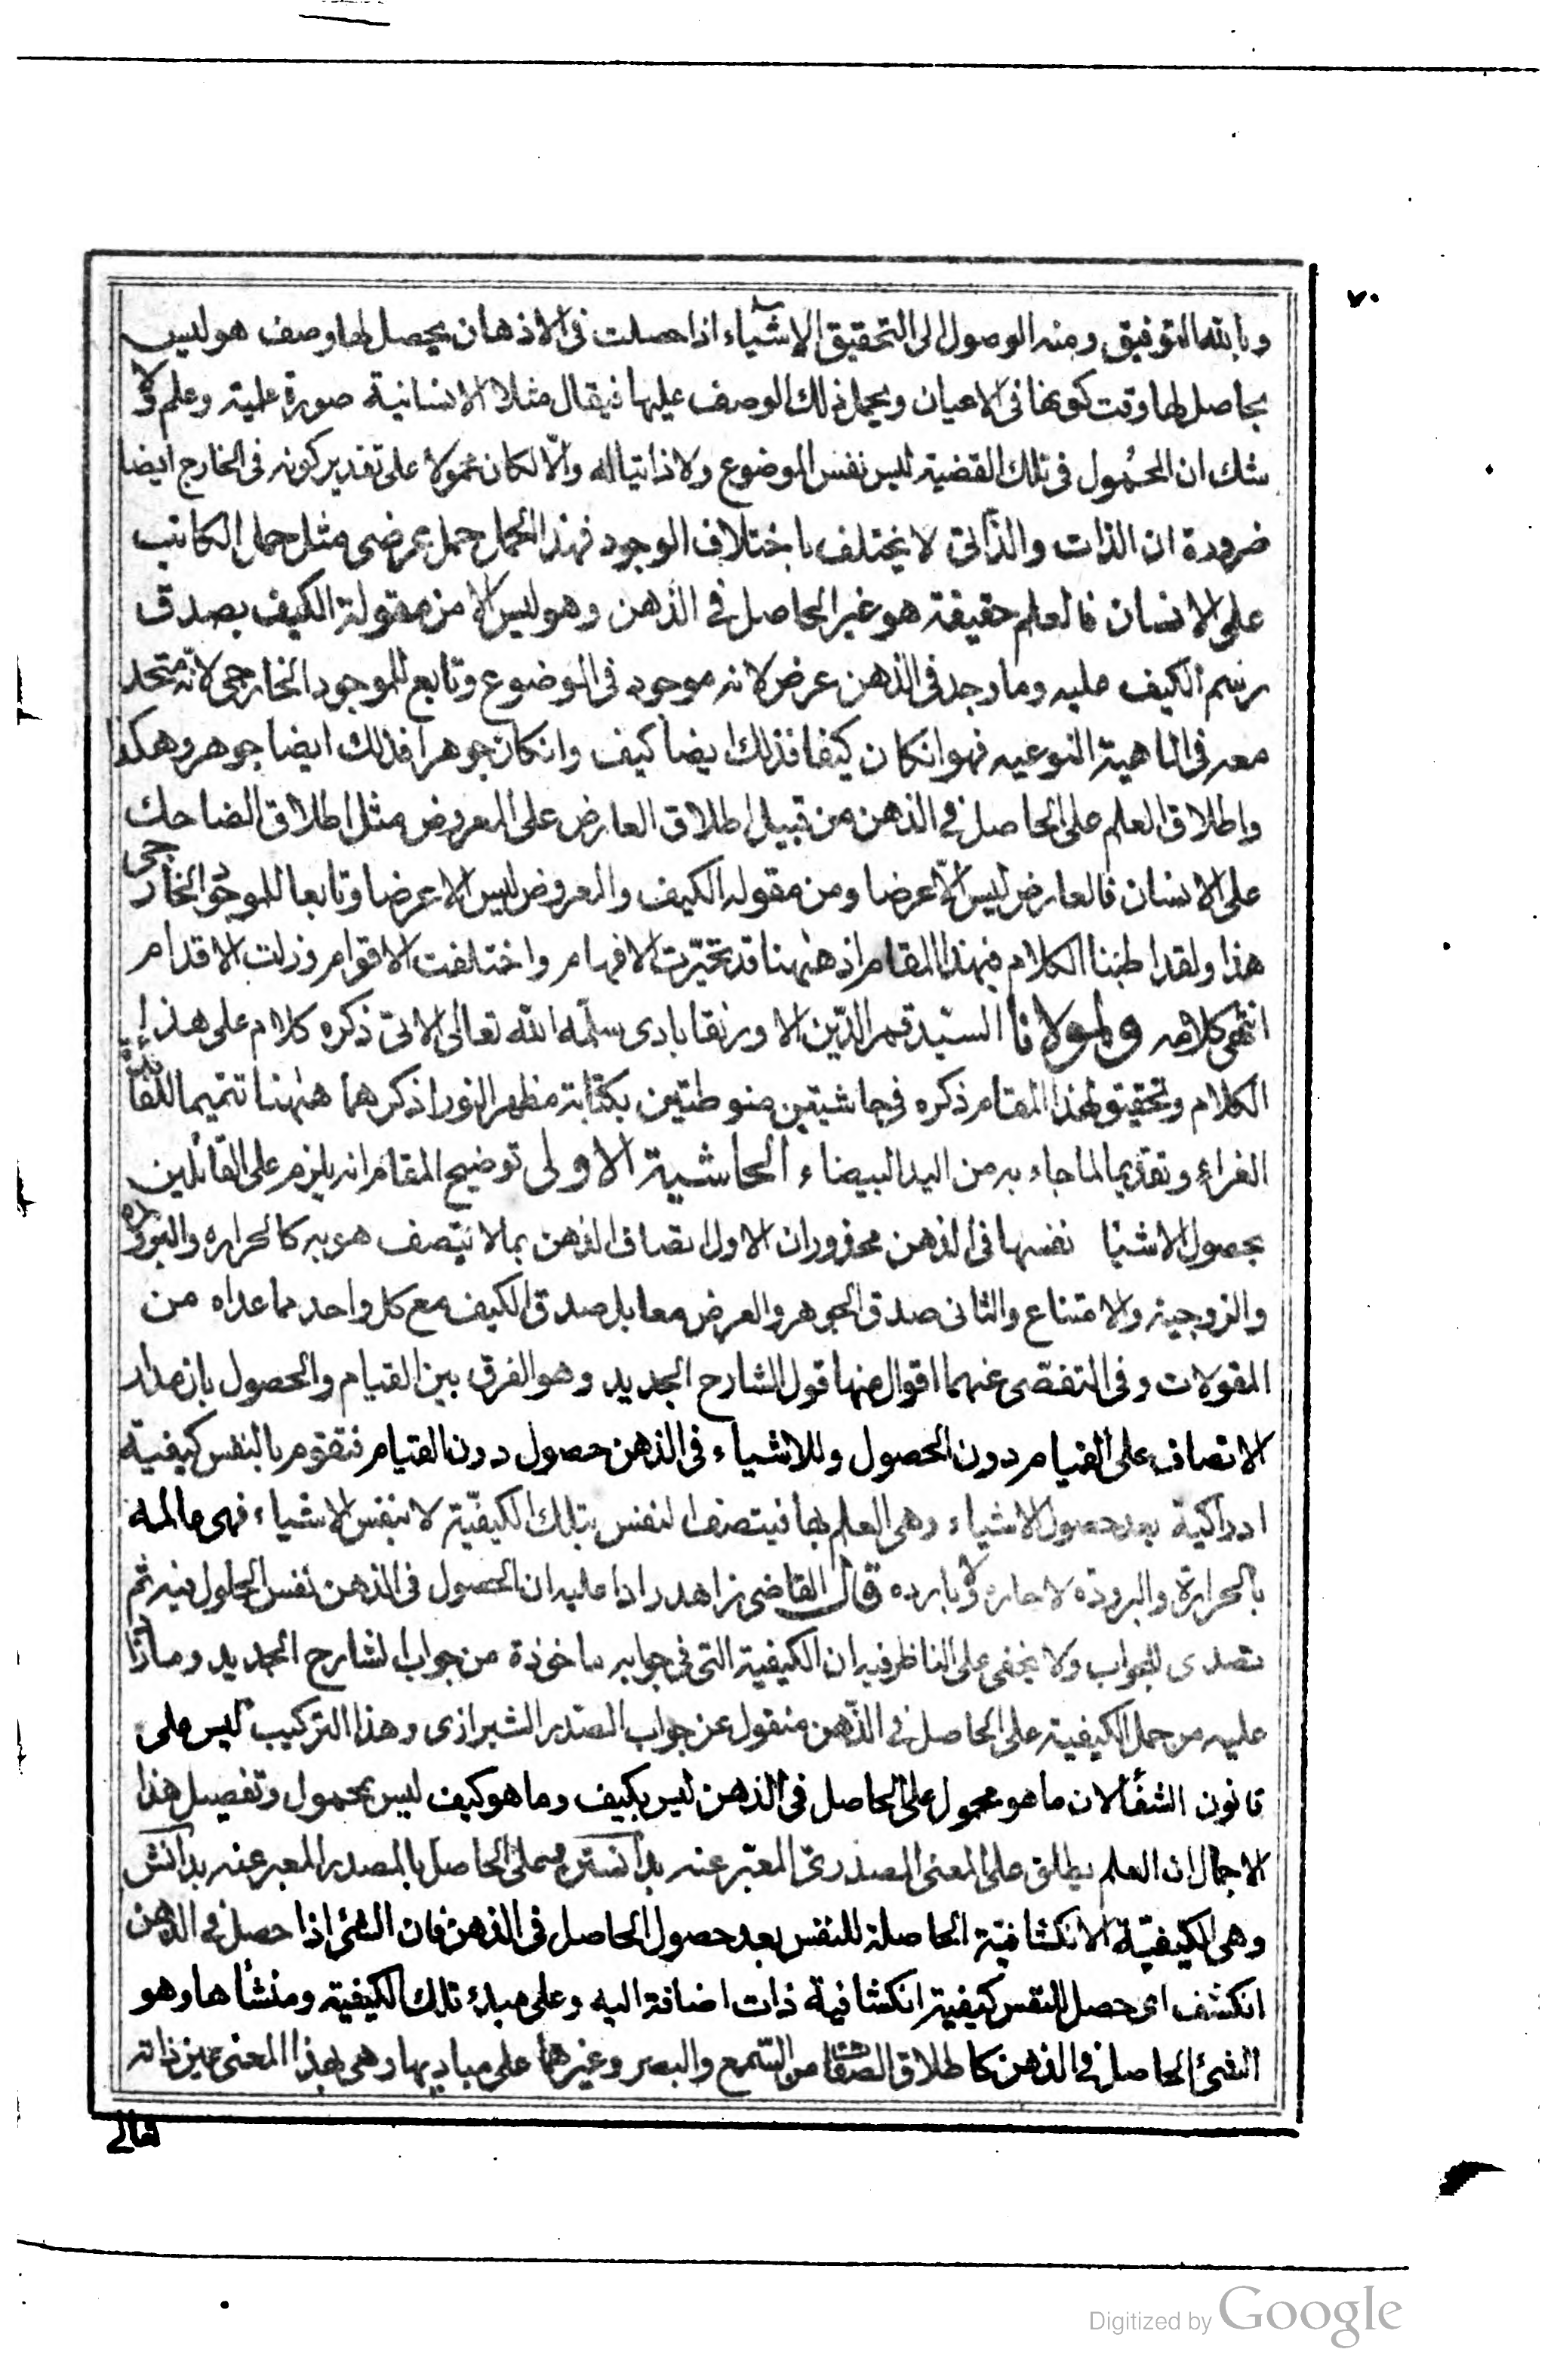 ٧٠
وبالله التوفيق ومنه الوصول الى التحقيق الاشياء اذا حصلت فى الاذهان يحصل لها وصف هو ليس
بحاصل لها وقت كونها فى الاعيان ويحمل ذلك الوصف عليها فيقال مثلا الانسانية صورة علمية وعلم ولا
شك ان المحمول فى تلك القضية ليس نفس الموضوع ولا ذاتيا له والّا لكان محمولا على تقدير كونه فى الخارج ايضا
ضرورة ان الذات والذاتى لا يختلف باختلاف الوجود فهذا الحمل حمل عرضى مثل حمل الكاتب
على الانسان فالعلم حقيقة هو غير الحاصل فى الذهن وهو ليس الا من مقولة الكيف بصدق
رسم الكيف عليه وما وجد فى الذهن عرض لانه موجود فى الموضوع وتابع للموجود الخارجى لانّه متحد
معه فى الماهية النوعيه فهو انكان كيفا فذلك ايضا كيف وانكان جوهرا فذلك ايضا جوهر وهكذا
واطلاق العلم على الحاصل فى الذهن من قبيل اطلاق العارض على المعروض مثل اطلاق الضاحك
على الانسان فالعارض ليس الّا عرضا ومن مقوله الكيف والمعروض ليس الا عرضا وتابعا للموجود الخارجى
هذا ولقد اطنبنا الكلام فى هذا المقام اذ ههنا قد تحيّرت الافهام واختلفت الاقوام وزلت الاقدام
انتهى كلامه ولمولانا السيّد قمر الدّين الاورنقابادى سلّمه الله تعالى الاتى ذكره كلام على هذا
الكلام وتحقيق لهذا المقام ذكره فى حاشيتين منوطتين بكتابة مظهر النور اذكرهما ههنا تتميما للفائدة
الغراء وتقديما لما جاء به من اليد البيضاء الحاشية الاولى توضيح المقام انه يلزم على القائلين
بحصول الاشيا نفسها فى الذهن محذوران الاول اتصاف الذهن بما لا يتصف هو به كالحراره والبروده
والزوجية والامتناع والثانى صدق الجوهر والعرض معا بل صدق الكيف مع كل واحد مما عداه من
المقولات وفى التفصّى عنهما اقوال منها قول الشارح الجديد وهو الفرق بين القيام والحصول بان مدار
الاتصاف على القيام دون الحصول وللاشياء فى الذهن حصول دون القيام فتقوم بالنفس كيفية
ادراكية بعد حصول الاشياء وهى العلم بها فيتصف النفس بتلك الكيفيّة لا بنفس الاشياء فهى عالمة
بالحرارة والبرودة لا حاره ولا بارده قال القاضى زاهد رادا عليه ان الحصول فى الذهن نفس الحلول فيه ثم
تصدى للجواب ولا يخفى على الناظر فيه ان الكيفية التى فى جوابه ماخوذة من جواب الشارح الجديد وما زاد
عليه من حمل الكيفية على الحاصل فى الذهن منقول عن جواب الصدر الشيرازى وهذا التركيب ليس على
قانون الشفا لان ما هو محمول على الحاصل فى الذهن ليس بكيف وما هو كيف ليس بمحمول وتفصيل هذا
الاجمال ان العلم يطلق على المعنى المصدرىّ المعبّر عنه بدانستن وعلى الحاصل بالمصدر المعبر عنه بدانش
وهى الكيفيّة الانكشافية الحاصلة للنفس بعد حصول الحاصل فى الذهن فان الشئ اذا حصل فى الذهن
انكشف اى حصل للنفس كيفية انكشافية ذات اضافة اليه وعلى مبادء تلك الكيفية ومنشأها وهو
الشئ الحاصل فى الذهن كاطلاق الصفات من السّمع والبصر وغيرهما على مباديها وهى بهذا المعنى عين ذاته
تعالى
Digitized by Google